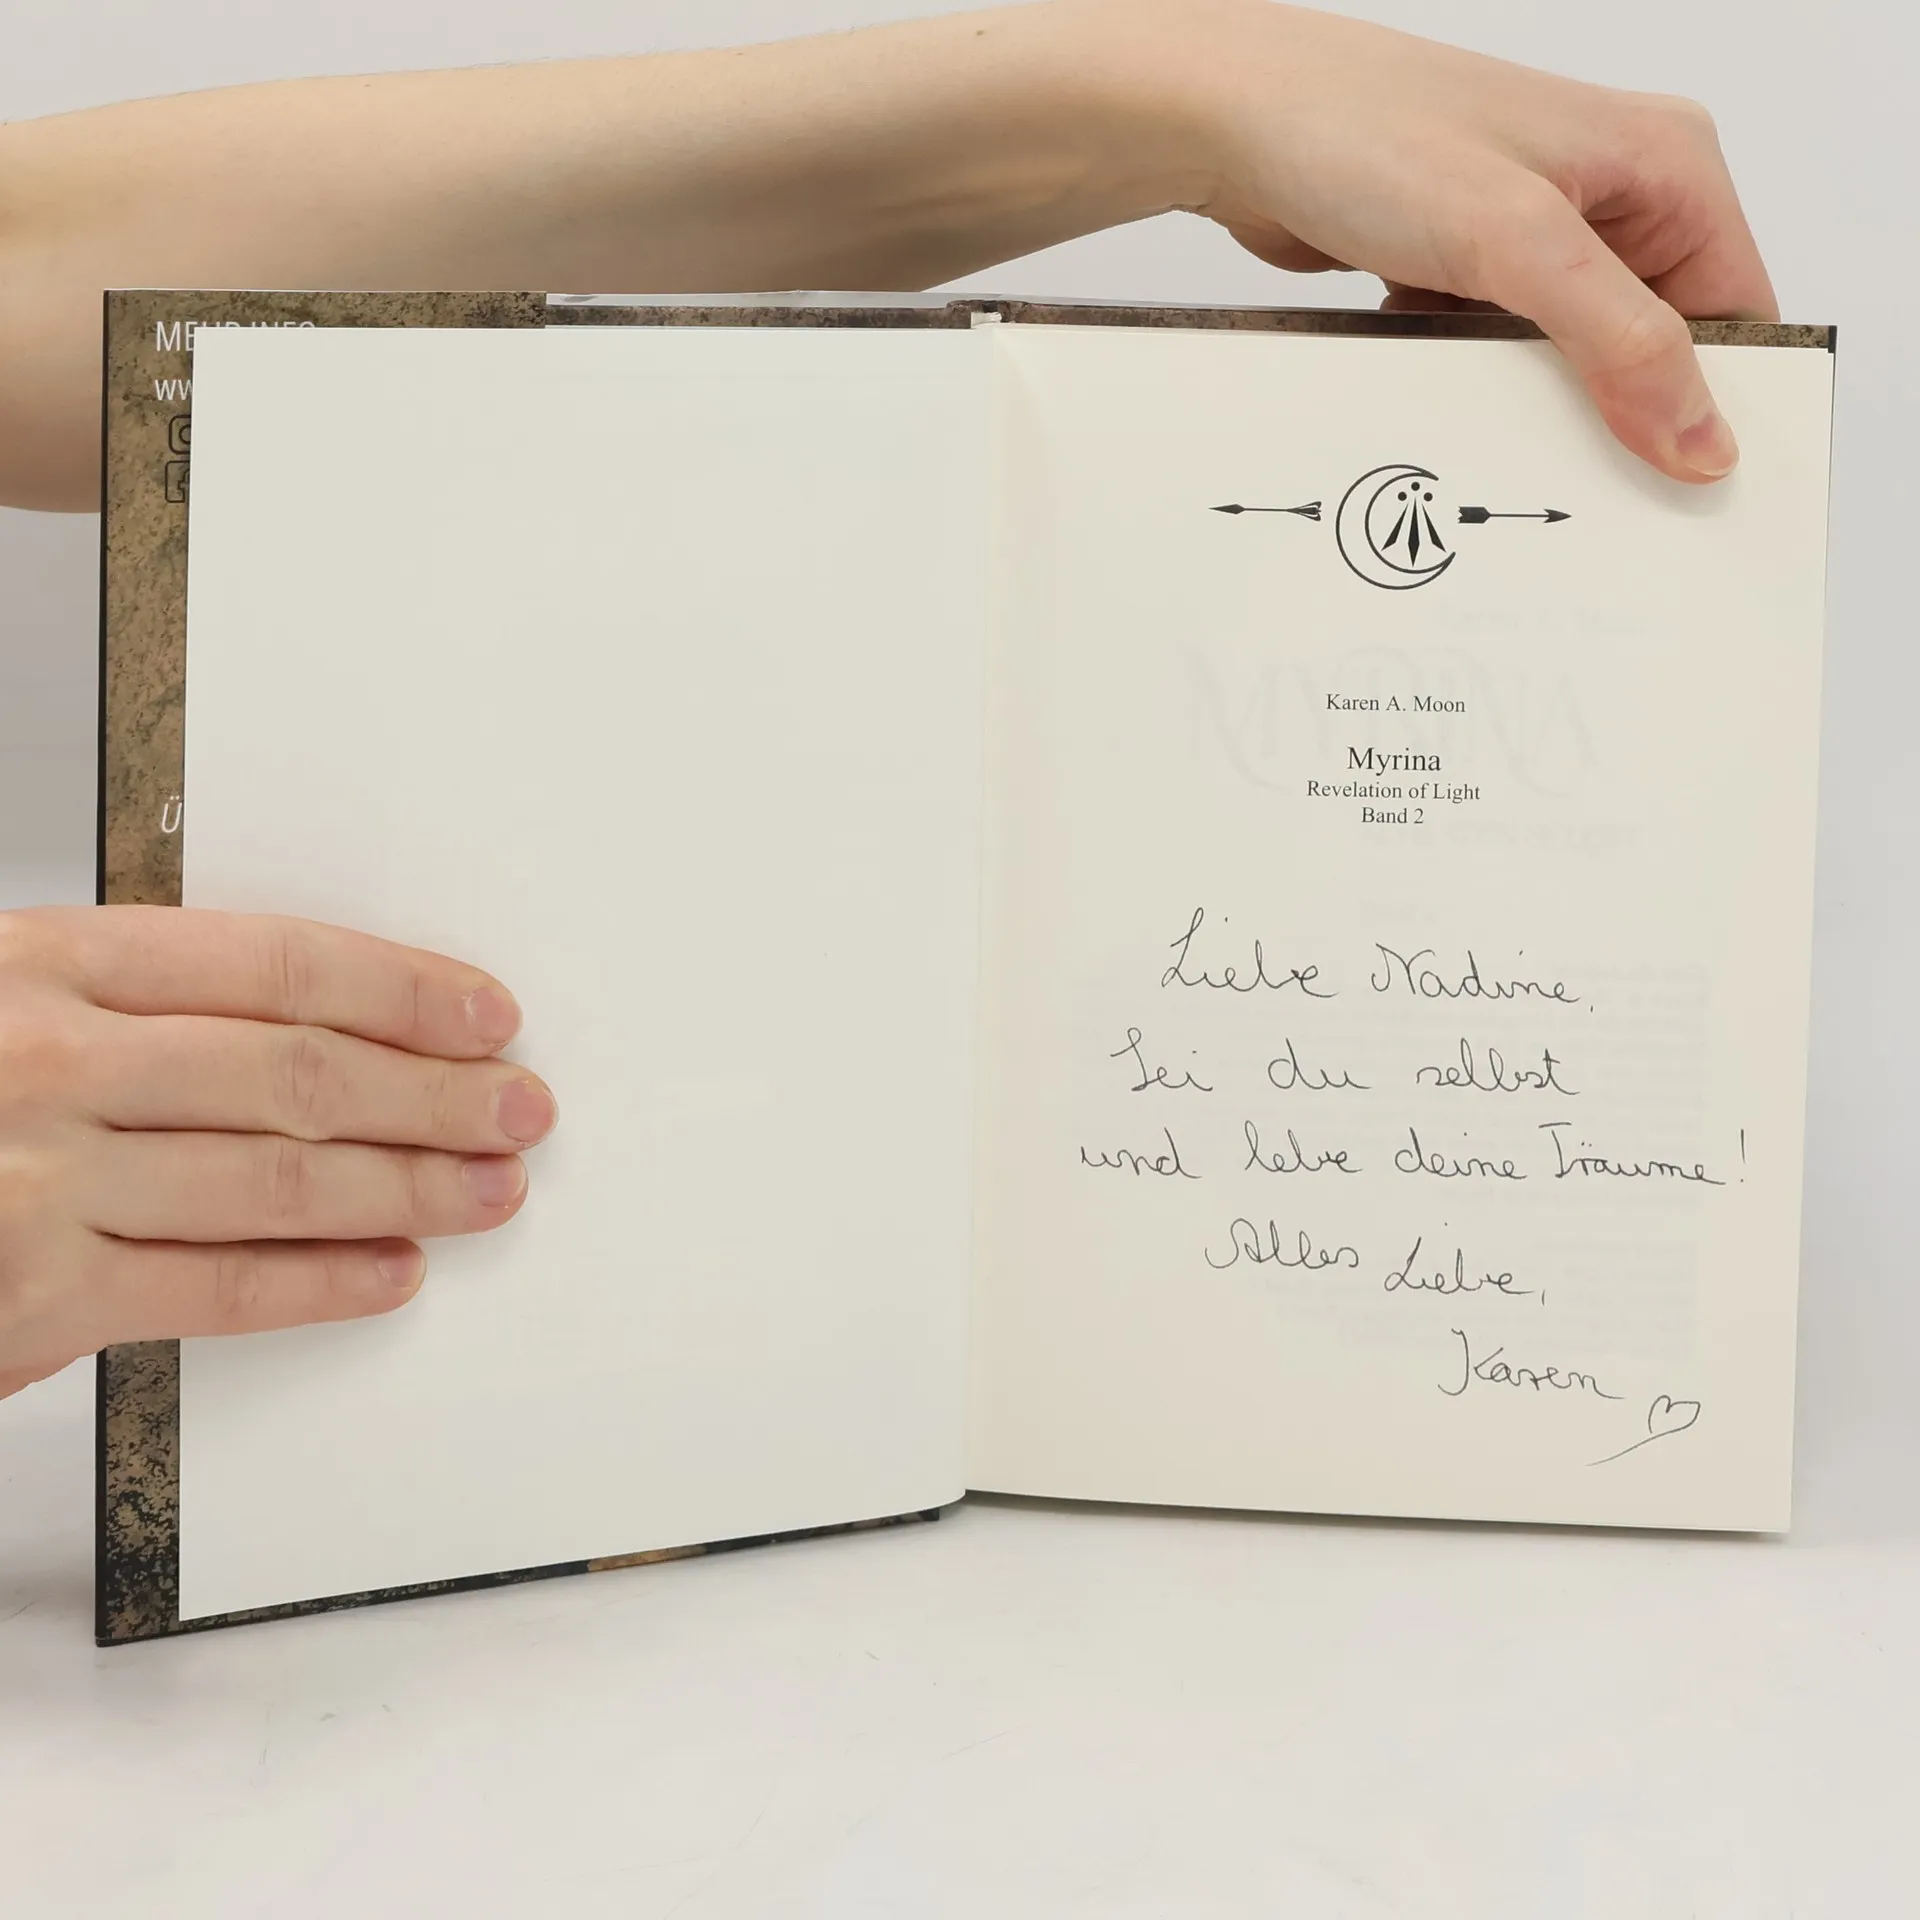 MEHR INFO
Ü
Karen A. Moon
Myrina
Revelation of Light
Band 2
Liebe Nadine,
Sei du selbst
und lebe deine Träume!
Alles Liebe,
Karen